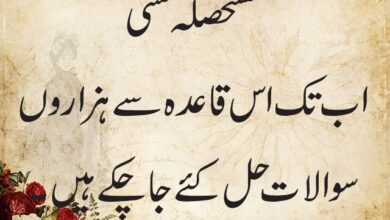 مستحصلہ شمسی
اب تک اس قاعدہ سے ہزاروں
سوالات حل کئے جا چکے ہیں ۔